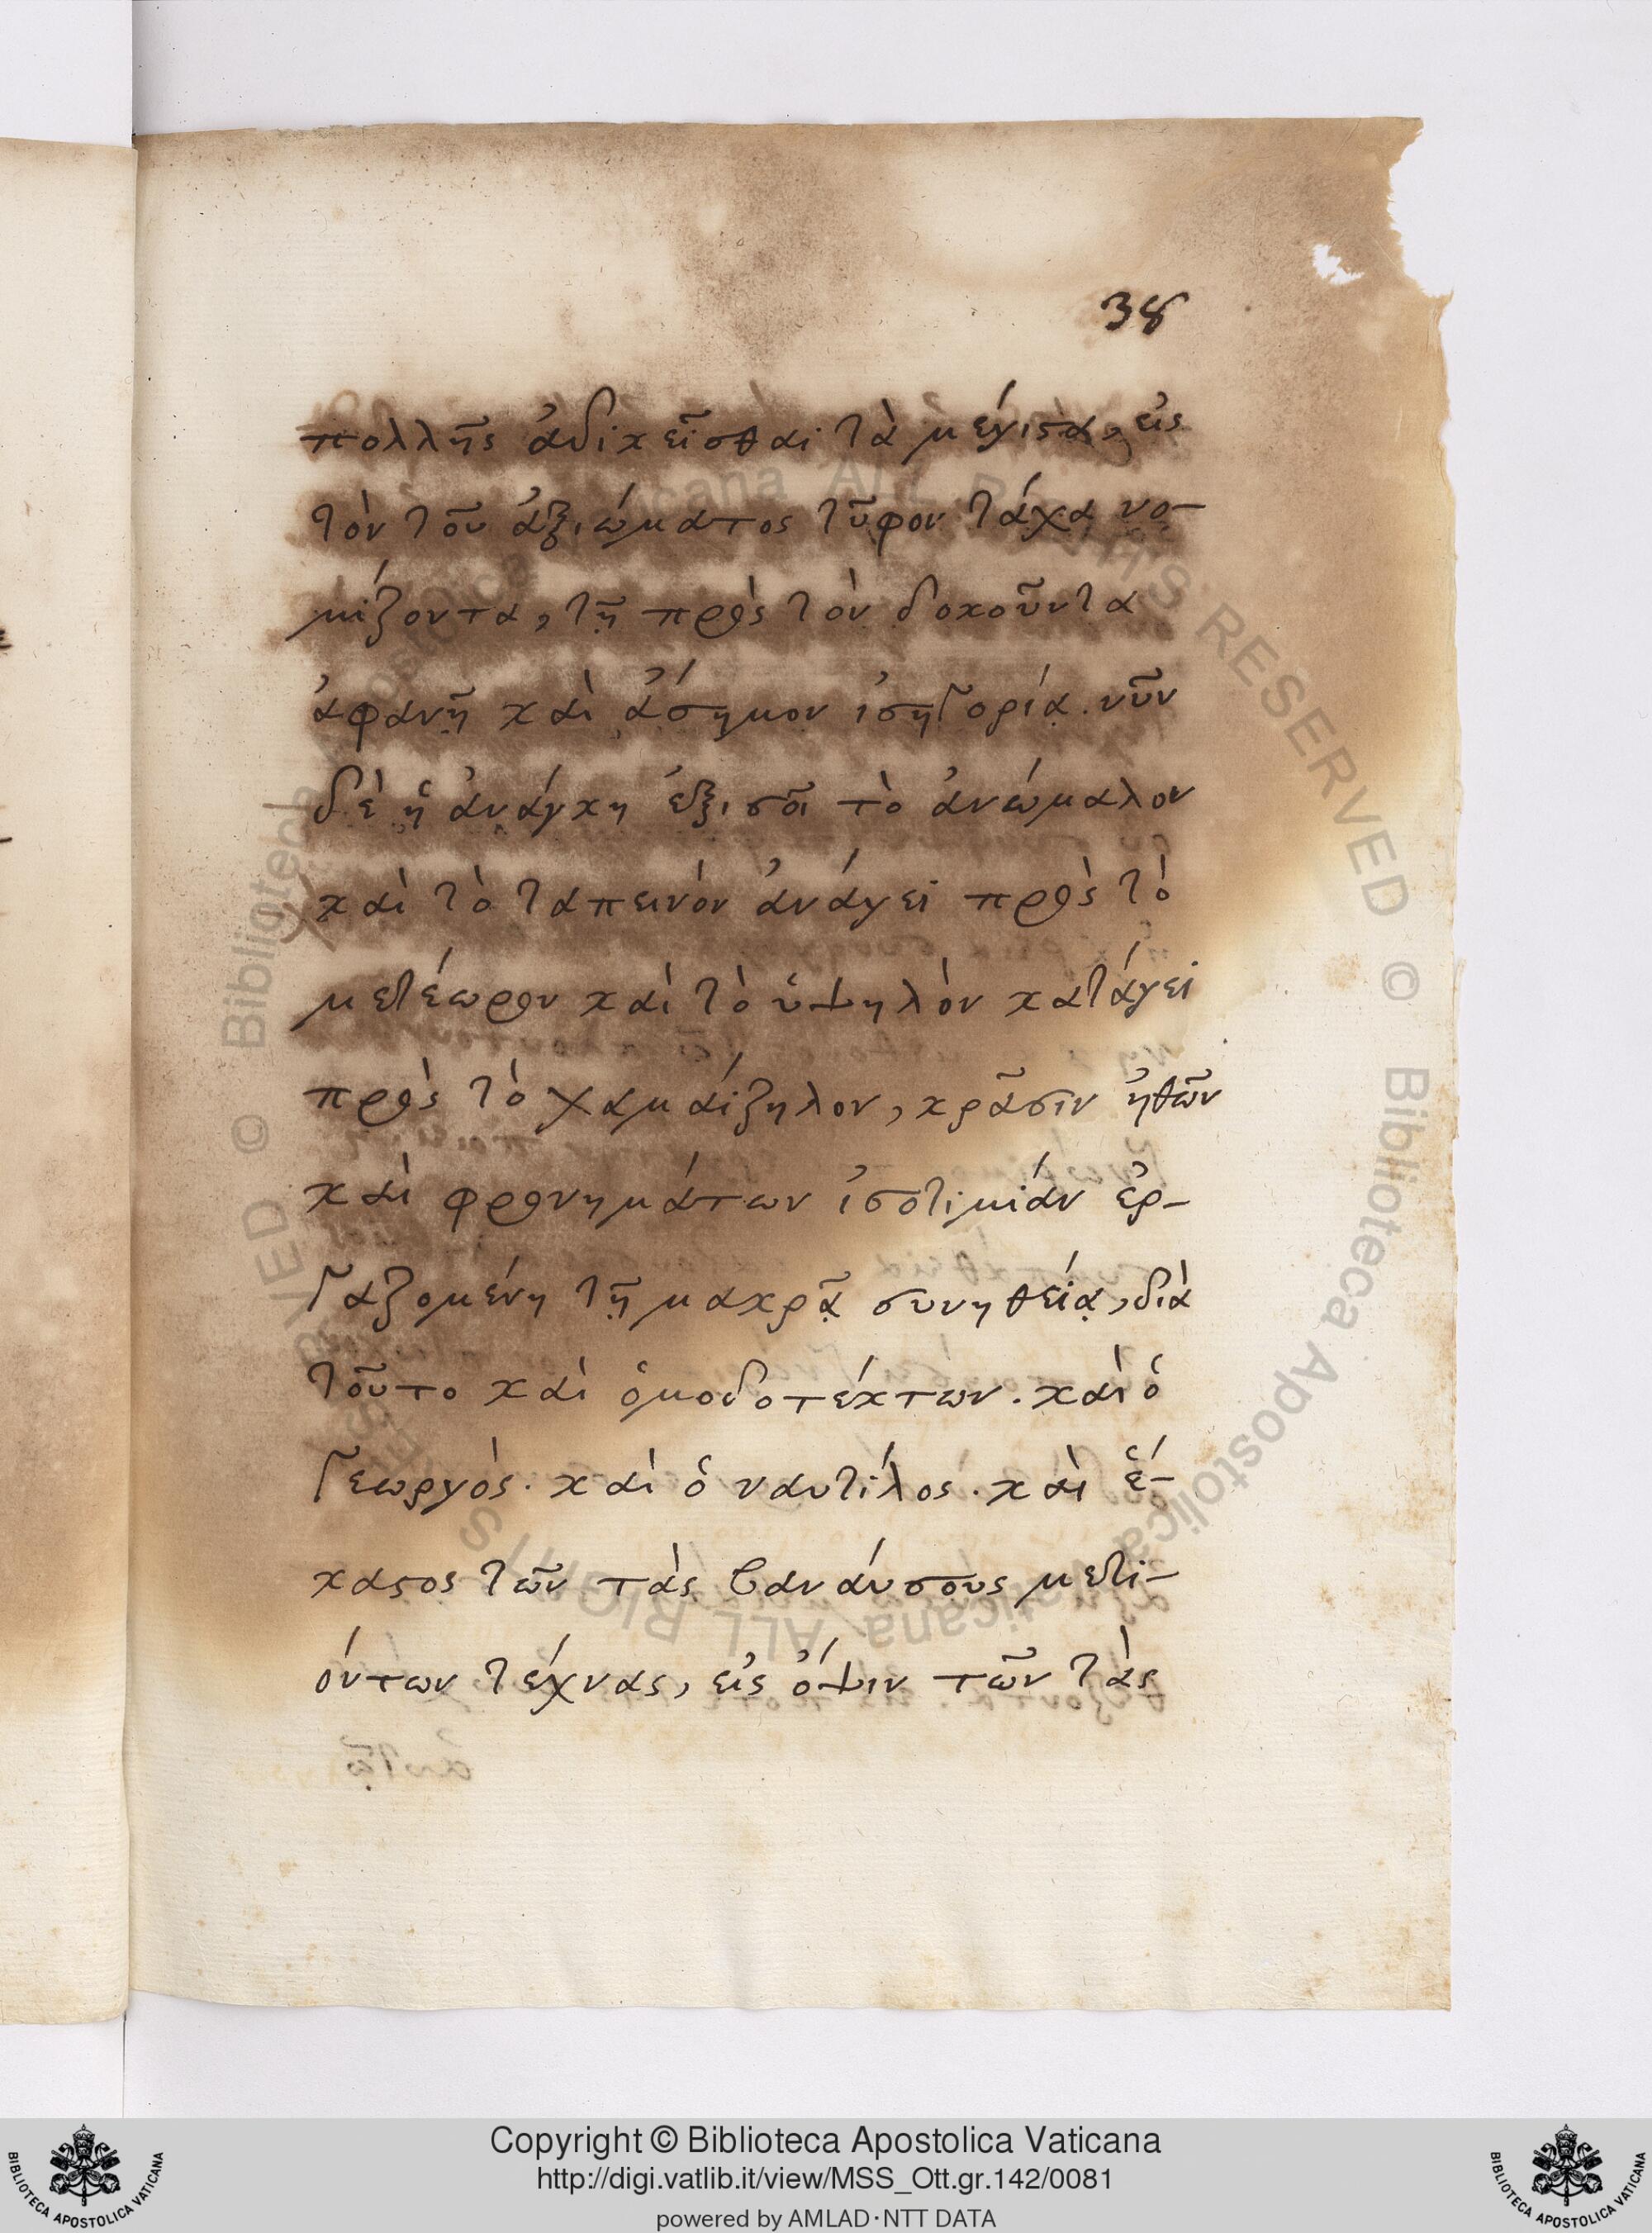 38
πολλῆς ἀδικεῖσθαι τὰ μέγιστα, εἰς
τὸν τοῦ ἀξιώματος τῦφον τάχα νο-
μίζοντα, τῇ πρὸς τὸν δοκοῦντα
ἀφανῆ καὶ ἄσημον ἰσηγορίᾳ. νῦν
δὲ ἡ ἀνάγκη ἐξισοῖ τὸ ἀνώμαλον
καὶ τὸ ταπεινὸν ἀνάγει πρὸς τὸ
μετέωρον καὶ τὸ ὑψηλὸν κατάγει
πρὸς τὸ χαμαίζηλον, κρᾶσιν ἠθῶν
καὶ φρονημάτων ἰσοτιμίαν ἐρ-
γαζομένη τῇ μακρᾷ συνηθείᾳ, διὰ
τοῦτο καὶ ὁμοδοτέκτων. καὶ ὁ
γεωργὸς. καὶ ὁ ναυτίλος. καὶ ἕ-
καστος τῶν τὰς βαναύσους μετι-
όντων τέχνας, εἰς ὄψιν τῶν τὰς
© Biblioteca Apostolica Vaticana ALL RIGHTS RESERVED © Biblioteca Apostolica Vaticana ALL RIGHTS RESERVED
BIBLIOTECA APOSTOLICA VATICANA
Copyright © Biblioteca Apostolica Vaticana
http://digi.vatlib.it/view/MSS_Ott.gr.142/0081
powered by AMLAD·NTT DATA
BIBLIOTECA APOSTOLICA VATICANA